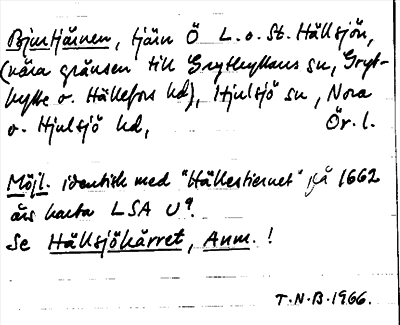 Bjurtjärnen, tjärn Ö L. o. St. Hällsjön,
(nära gränsen till Grythyttans sn, Gryt-
hytte o. Hällefors hd), Hjulsjö sn, Nora
o. Hjulsjö hd, Ör. l.
Möjl. identisk med "Hällestiernet" på 1662
års karta LSA U9.
Se Hällsjökärret, Anm.!
T.N.B. 1966.